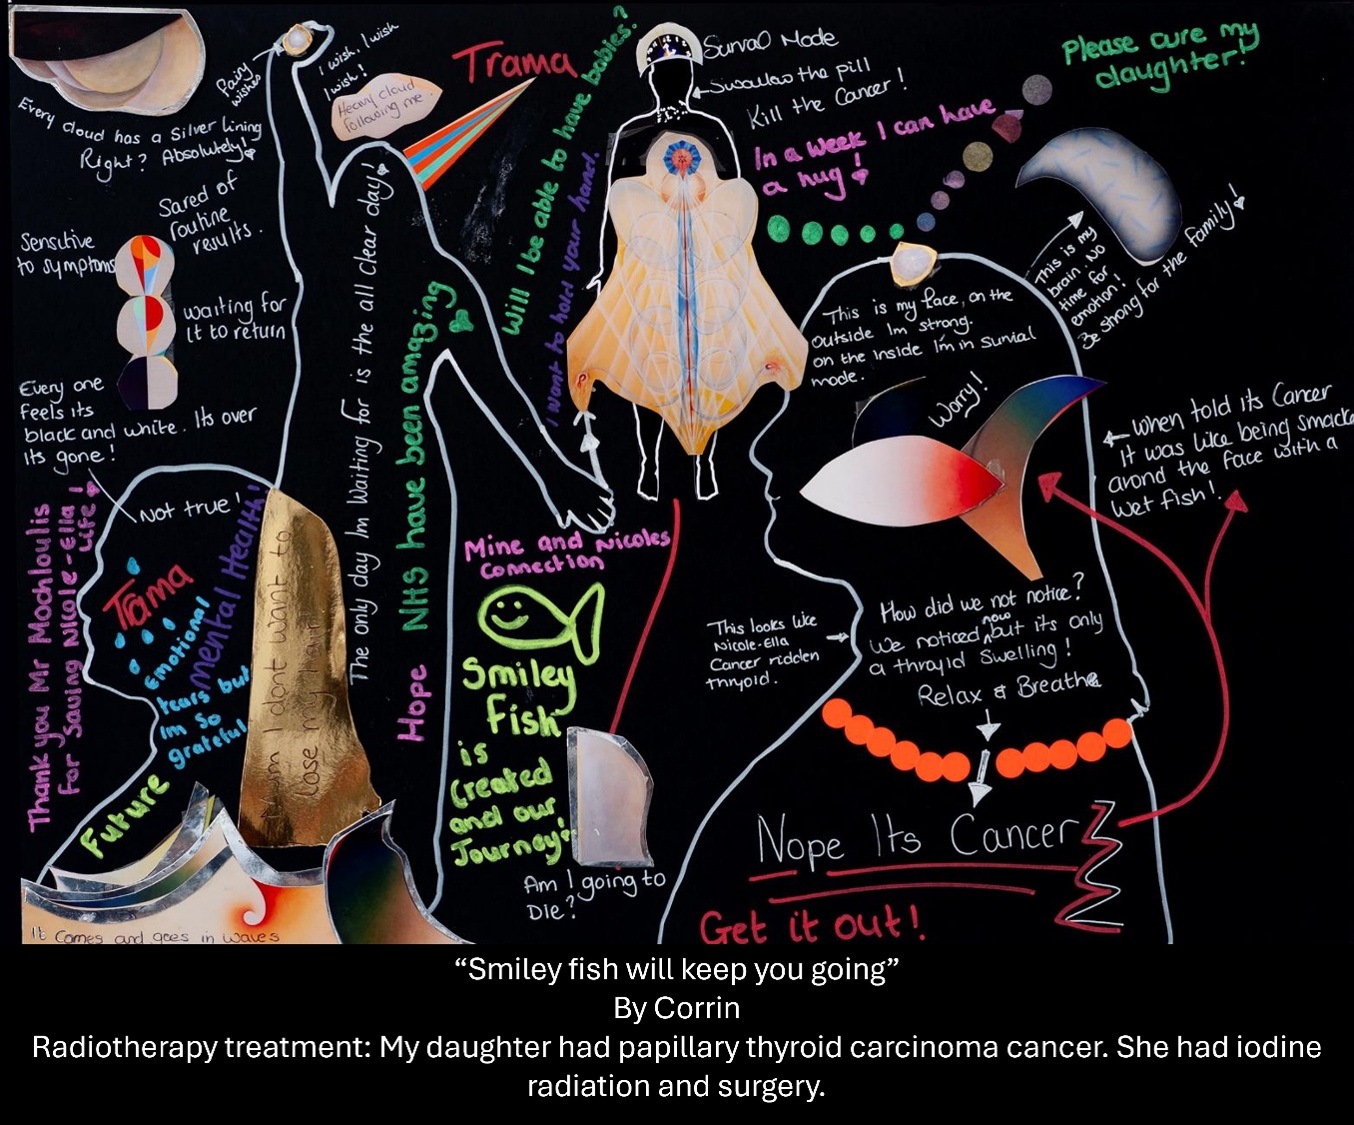 Every cloud has a Silver lining
Right? Absolutely!
Fairy
wishes
I wish, I wish
I wish!
Heavy cloud
following me.
Trama
Will I be able to have babies?
I want to hold your hand.
Survial Mode
Swallow the pill
Kill the Cancer!
In a week I can have
a hug!
Please cure my
daughter!
This is my
brain NO
time for
emotion!
Be strong for the family!
Sared of
routine
results.
Sensitive
to symptoms
waiting for
it to return
Every one
feels its
black and white. Its over
Its gone!
Not true!
Thank you Mr Mochloulis
For Saving Nicole-Ella
Life!
Trama
Emotional
tears but
Im So
grateful
mental Health!
Future
Mum I dont want to
lose my hair!
The only day Im Waiting for is the all clear day!
Hope NHS have been amazing
It comes and goes in waves
Mine and Nicoles
Connection
Smiley
fish
is
Created
and our
Journey!
Am I going to
Die?
This is my face, on the
outside Im strong.
on the inside I'm in survial
mode.
Worry!
When told its Cancer
It was like being smacked
arond the face with a
wet fish!
This looks like
Nicole-Ella
Cancer ridden
thryoid.
How did we not notice?
We noticed now but its only
a thryoid Swelling!
Relax & Breathe
Nope Its Cancer
Get it out!
“Smiley fish will keep you going”
By Corrin
Radiotherapy treatment: My daughter had papillary thyroid carcinoma cancer. She had iodine
radiation and surgery.